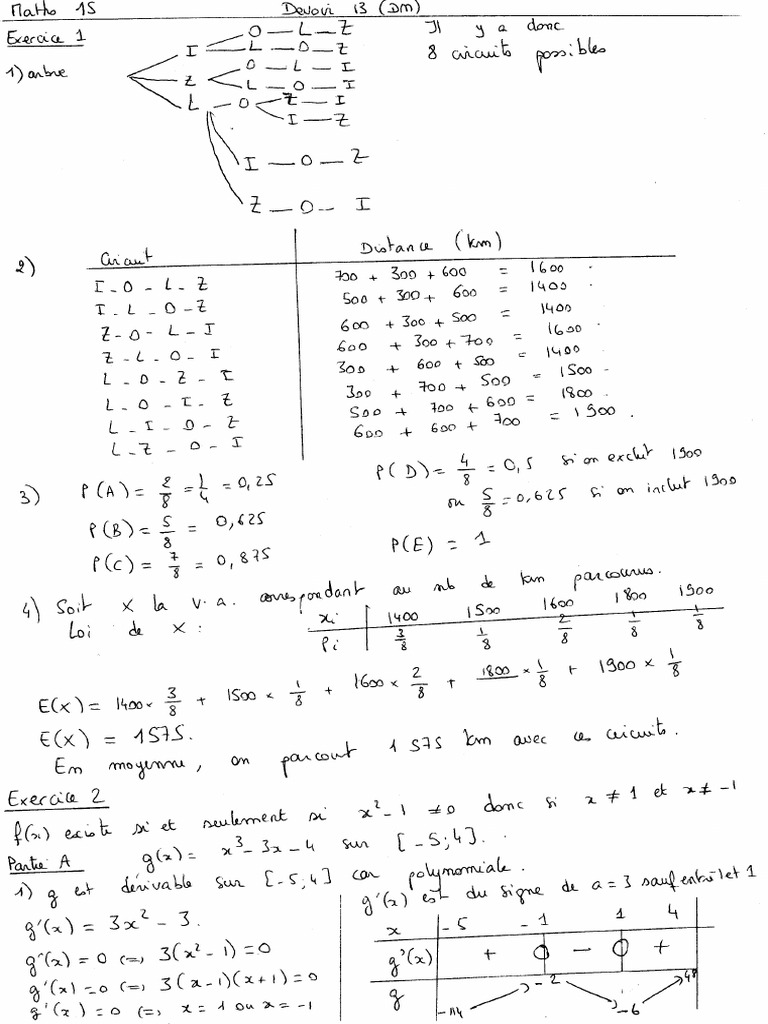 Maths 1S Devoir 13 (DM)
Exercice 1
Il y a donc
8 circuits possibles
1) arbre
I O — L — Z
L — O — Z
Z O — L — I
L — O — I
L — O Z — I
I — Z
I — O — Z
Z — O — I
2) Circuit Distance (km)
I - O - L - Z 700 + 300 + 600 = 1600
I - L - O - Z 500 + 300 + 600 = 1400
Z - O - L - I 600 + 300 + 500 = 1400
Z - L - O - I 600 + 300 + 700 = 1600
L - O - Z - I 300 + 600 + 500 = 1400
L - O - I - Z 300 + 700 + 500 = 1500
L - I - O - Z 500 + 700 + 600 = 1800
L - Z - O - I 600 + 600 + 700 = 1900
3) P(A) = 2/8 = 1/4 = 0,25
P(B) = 5/8 = 0,625
P(C) = 7/8 = 0,875
P(D) = 4/8 = 0,5 si on exclut 1900
ou 5/8 = 0,625 si on inclut 1900
P(E) = 1
4) Soit X la v.a. correspondant au nb de km parcourus.
Loi de X :
xi 1400 1500 1600 1800 1900
Pi 3/8 1/8 2/8 1/8 1/8
E(X) = 1400 × 3/8 + 1500 × 1/8 + 1600 × 2/8 + 1800 × 1/8 + 1900 × 1/8
E(X) = 1575.
En moyenne, on parcourt 1 575 km avec ces circuits.
Exercice 2
f(x) existe si et seulement si x² - 1 ≠ 0 donc si x ≠ 1 et x ≠ -1
Partie A g(x) = x³ - 3x - 4 sur [-5;4].
1) g est dérivable sur [-5;4] car polynomiale.
g'(x) = 3x² - 3.
g'(x) = 0 (=) 3(x² - 1) = 0
g'(x) = 0 (=) 3(x - 1)(x + 1) = 0
g'(x) = 0 (=) x = 1 ou x = -1
g'(x) est du signe de a = 3 sauf entre -1 et 1
x -5 -1 1 4
g'(x) + 0 — 0 +
g -114 -2 -6 48